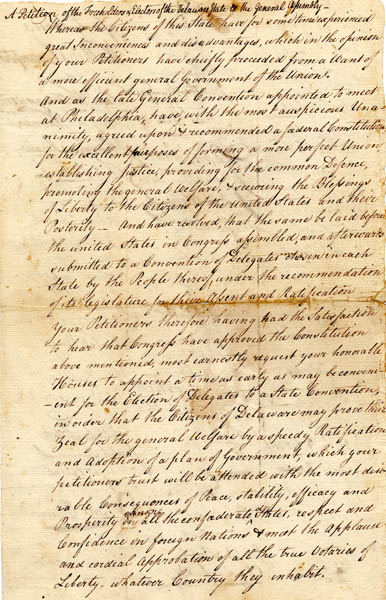 A Petition of the Freeholders & Electors of the Delaware State to the General Assembly—
Whereas the Citizens of this State have for some time experienced
great Inconveniences and disadvantages, which in the opinion
of your Petitioners have chiefly proceeded from a Want of
a more efficient general Government of the Union.
And as the late General Convention appointed to meet
at Philadelphia, have, with the most auspicious Una-
nimity, agreed upon & recommended a fœderal Constitution
for the excellent purposes of forming a more perfect Union
establishing Justice, providing for the common Defence,
promoting the general Welfare, & securing the Blessings
of Liberty to the Citizens of the United States and their
Posterity— And have resolved, that the same be laid before
the united States in Congress assembled, and afterwards
submitted to a Convention of Delegates chosen in each
State by the People thereof, under the recommendation
of its legislature for their Assent and Ratification
Your Petitioners therefore having had the Satisfaction
to hear that Congress have approved the Constitution
above mentioned, most earnestly request your honorable
Houses to appoint a time as early as may be conveni-
-ent for the Election of Delegates to a State Convention,
in order that the Citizens of Delaware may prove their
Zeal for the general Welfare by a speedy Ratification
and Adoption of a plan of Government, which your
petitioners trust will be attended with the most desi-
rable Consequences of Peace, stability, efficacy and
Prosperity among all the confœderated States, respect and
Confidence in foreign Nations & most the Applause
and cordial Approbation of all the true Votaries of
Liberty, whatever Country they inhabit.